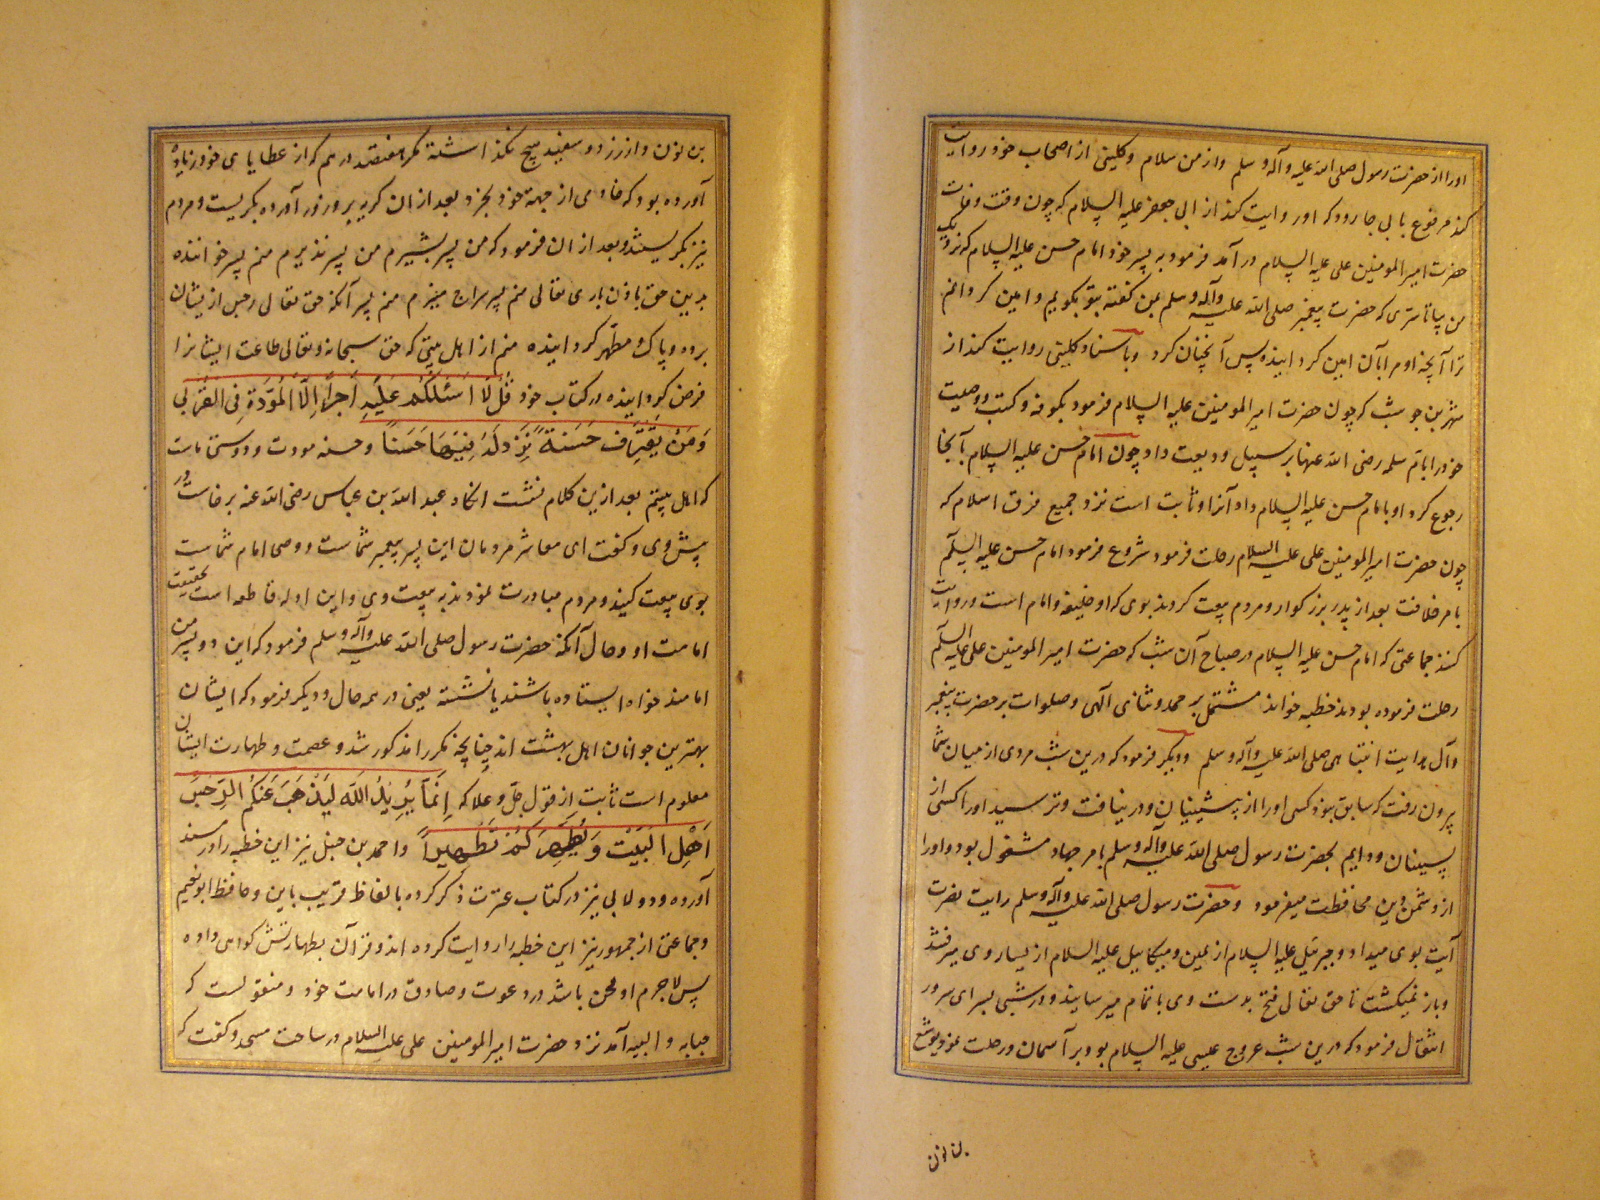 اورا از حضرت رسول صلی الله علیه وآله و سلم واز من سلام وکلینی از اصحاب خود روایت
کند مرفوع بابی جارود که او روایت کند از ابی جعفر علیه السلام که چون وقت وفات
حضرت امیرالمومنین علی علیه السلام درآمد فرمود به پسر خود امام حسن علیه السلام که نزدیک
من بیا تا سری که حضرت پیغمبر صلی الله علیه وآله وسلم بمن گفته بتو بگویم و امین گردانم
ترا آنچه او مرا بآن امین گردانیده پس آنچنان کرد وباسناد کلینی روایت کند از
شهر بن حوشب که چون حضرت امیرالمومنین علیه السلام فرمود بکوفه و کتب و وصیت
خود را بام سلمه رضی الله عنها بر سبیل ودیعت داد چون امام حسن علیه السلام بآنجا
رجوع کرد او بامام حسن علیه السلام داد آنرا وثابت است نزد جمیع فرق اسلام که
چون حضرت امیرالمومنین علی علیه السلام رحلت فرمود شروع فرمود امام حسن علیه السلام
بامر خلافت بعد از پدر بزرکوار ومردم بیعت کردند بوی که او خلیفه وامام است وروایت
کنند جماعتی که امام حسن علیه السلام در صباح آن شب که حضرت امیرالمومنین علی علیه السلام
رحلت فرموده بودند خطبه خواند مشتمل بر حمد وثنای الهی وصلوات بر حضرت پیغمبر
وآل هدایت انتباهی صلی الله علیه وآله وسلم ودیکر فرمود که درین شب مردی از میان شما
بیرون رفت که سابق نبود کسی اورا از پیشینیان ودرنیافت ونرسید اورا کسی از
پسینان ودایم بحضرت رسول صلی الله علیه وآله وسلم بامر جهاد مشغول بود واورا
از دشمن دین محافظت میفرمود وحضرت رسول صلی الله علیه وآله وسلم رایت نصرت
آیت بوی میداد وجبرئیل علیه السلام از یمین ومیکائیل علیه السلام از یسار وی میرفتند
وباز نمیکشت تا حق تعالی فتح بدست وی باتمام میرسانید ودر شبی بسرای سرور
انتقال فرمود که درین شب عروج عیسی علیه السلام بود بر آسمان ورحلت نمود یوشع
بن نون
بن نون واز زرد وسفید هیچ نکذاشته مکر هفتصد درهم که از عطایای خود زیاده
آورده بود که خادمی از جهة خود بخرد بعد از ان کریه برو زور آورده بکریست ومردم
نیز بکریستند وبعد از ان فرمود که من پسر بشیرم من پسر نذیرم منم پسر خواننده
بدین حق باذن باری تعالی منم پسر سراج منیرم منم پسر آنکه حق تعالی رجس ازیشان
برده وپاک ومطهر کردانیده منم از اهل بیتی که حق سبحانه وتعالی طاعت ایشانرا
فرض کردانیده در کتاب خود قُلْ لَا اَسْئَلُکُمْ عَلَیْهِ اَجْراً اِلَّا الْمَوَدَّةَ فِی الْقُرْبٰی
وَمَنْ یَقْتَرِفْ حَسَنَةً نَزِدْ لَهُ فِیهَا حَسَناً وحسنه مودت ودوستی ماست
که اهل بیتیم بعد ازین کلام نشست انکاه عبد الله بن عباس رضی الله عنه برخاست در
پیش وی وکفت ای معاشر مردمان این پسر پیغمبر شماست ووصی امام شماست
بوی بیعت کنید ومردم مبادرت نمودند به بیعت وی واین ادله قاطعه است بحقیقت
امامت او وحال آنکه حضرت رسول صلی الله علیه وآله وسلم فرمود که این دو پسر من
امامند خواه ایستاده باشند یا نشسته یعنی در همه حال ودیکر فرمود که ایشان
بهترین جوانان اهل بهشت اند چنانچه مکررا مذکور شد وعصمت وطهارت ایشان
معلوم است ثابت از قول جل وعلا که اِنَّمَا یُرِیدُ اللّٰه لِیُذْهِبَ عَنْکُمُ الرِّجْسَ
اَهْلَ الْبَیْتِ وَیُطَهِّرَکُمْ تَطْهِیراً واحمد بن حنبل نیز این خطبه را در مسند
آورده ودولابی نیز در کتاب عترت ذکر کرده بالفاظ قریب باین وحافظ ابو نعیم
وجماعتی از جمهور نیز این خطبه را روایت کرده اند وقرآن بطهارتش کواهی داده
پس لاجرم او محق باشد در دعوت وصادق در امامت خود ومنقولست که
حبابه والبیه آمد نزد حضرت امیرالمومنین علی علیه السلام در ساحت مسجد وکفت که